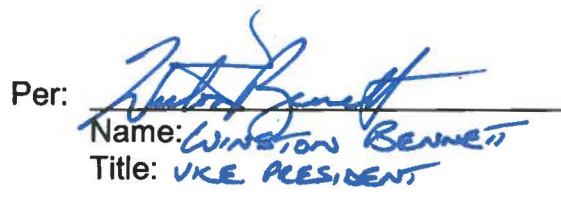 Per: Winston Bennett
Name: WINSTON BENNETT
Title: VICE PRESIDENT